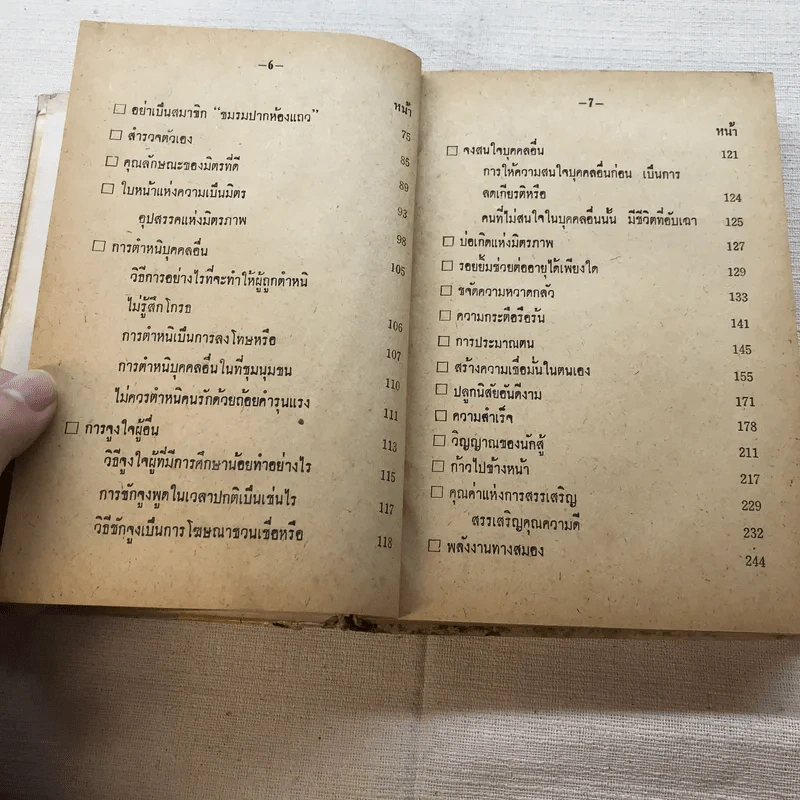 —6—
หน้า
☐ อย่าเป็นสมาชิก “ชมรมปากห้องแถว” 75
☐ สำรวจตัวเอง 85
☐ คุณลักษณะของมิตรที่ดี 89
☐ ใบหน้าแห่งความเป็นมิตร 93
อุปสรรคแห่งมิตรภาพ 98
☐ การตำหนิบุคคลอื่น 105
วิธีการอย่างไรที่จะทำให้ผู้ถูกตำหนิ
ไม่รู้สึกโกรธ 106
การตำหนิเป็นการลงโทษหรือ 107
การตำหนิบุคคลอื่นในที่ชุมนุมชน 110
ไม่ควรตำหนิคนรักด้วยถ้อยคำรุนแรง 111
☐ การจูงใจผู้อื่น 113
วิธีจูงใจผู้ที่มีการศึกษาน้อยทำอย่างไร 115
การชักจูงพูดในเวลาปกติเป็นเช่นไร 117
วิธีชักจูงเป็นการโฆษณาชวนเชื่อหรือ 118
—7—
หน้า
☐ จงสนใจบุคคลอื่น 121
การให้ความสนใจบุคคลอื่นก่อน เป็นการ
ลดเกียรติหรือ 124
คนที่ไม่สนใจในบุคคลอื่นนั้น มีชีวิตที่อับเฉา 125
☐ บ่อเกิดแห่งมิตรภาพ 127
☐ รอยยิ้มช่วยต่ออายุได้เพียงใด 129
☐ ขจัดความหวาดกลัว 133
☐ ความกระตือรือร้น 141
☐ การประมาณตน 145
☐ สร้างความเชื่อมั่นในตนเอง 155
☐ ปลูกนิสัยอันดีงาม 171
☐ ความสำเร็จ 178
☐ วิญญาณของนักสู้ 211
☐ ก้าวไปข้างหน้า 217
☐ คุณค่าแห่งการสรรเสริญ 229
สรรเสริญคุณความดี 232
☐ พลังงานทางสมอง 244